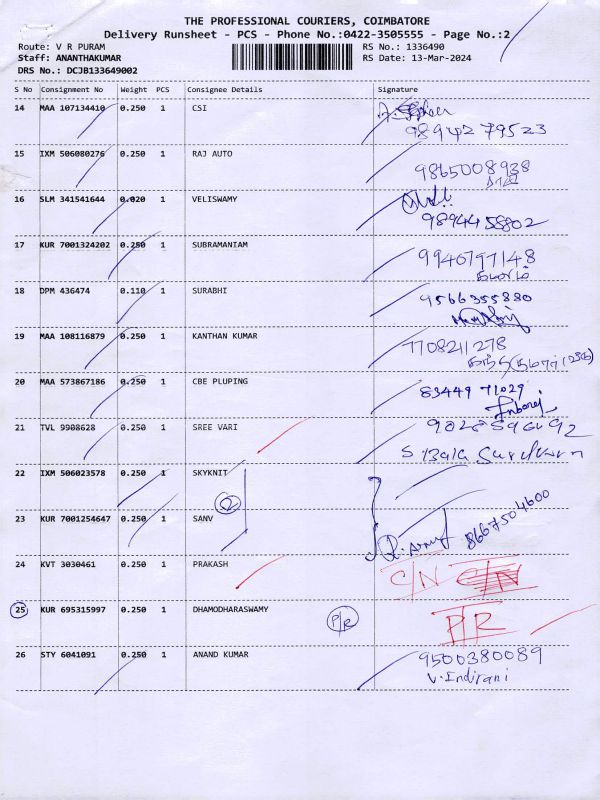 THE PROFESSIONAL COURIERS, COIMBATORE
Delivery Runsheet - PCS - Phone No.:0422-3505555 - Page No.:2
Route: V R PURAM RS No.: 1336490
Staff: ANANTHAKUMAR RS Date: 13-Mar-2024
DRS No.: DCJB133649002
S No Consignment No Weight PCS Consignee Details Signature
14 MAA 107134410 0.250 1 CSI
98942 79523
15 IXM 506080276 0.250 1 RAJ AUTO
9865008938
16 SLM 341541644 0.020 1 VELISWAMY
9894458802
17 KUR 7001324202 0.250 1 SUBRAMANIAM
9940797148
18 DPM 436474 0.110 1 SURABHI 9566355880
19 MAA 108116879 0.250 1 KANTHAN KUMAR
7708211278
20 MAA 573867186 0.250 1 CBE PLUPING 83449 71029
21 TVL 9908628 0.250 1 SREE VARI
22 IXM 506023578 0.250 1 SKYKNIT
2
23 KUR 7001254647 0.250 1 SANV 8667504600
24 KVT 3030461 0.250 1 PRAKASH C/N C/N
25 KUR 695315997 0.250 1 DHAMODHARASWAMY P/R P/R
26 STY 6041091 0.250 1 ANAND KUMAR 9500380089
V. Indirani